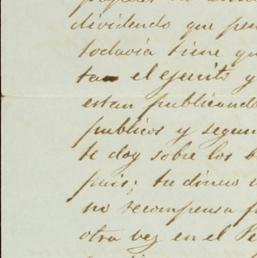 dividendo que pe
todavia tiene qu
tan el ejercito y
estan publicando
publicos y segun
te doy sobre los b
pais; tu dinero
no recompensa
otra vez en el Pe